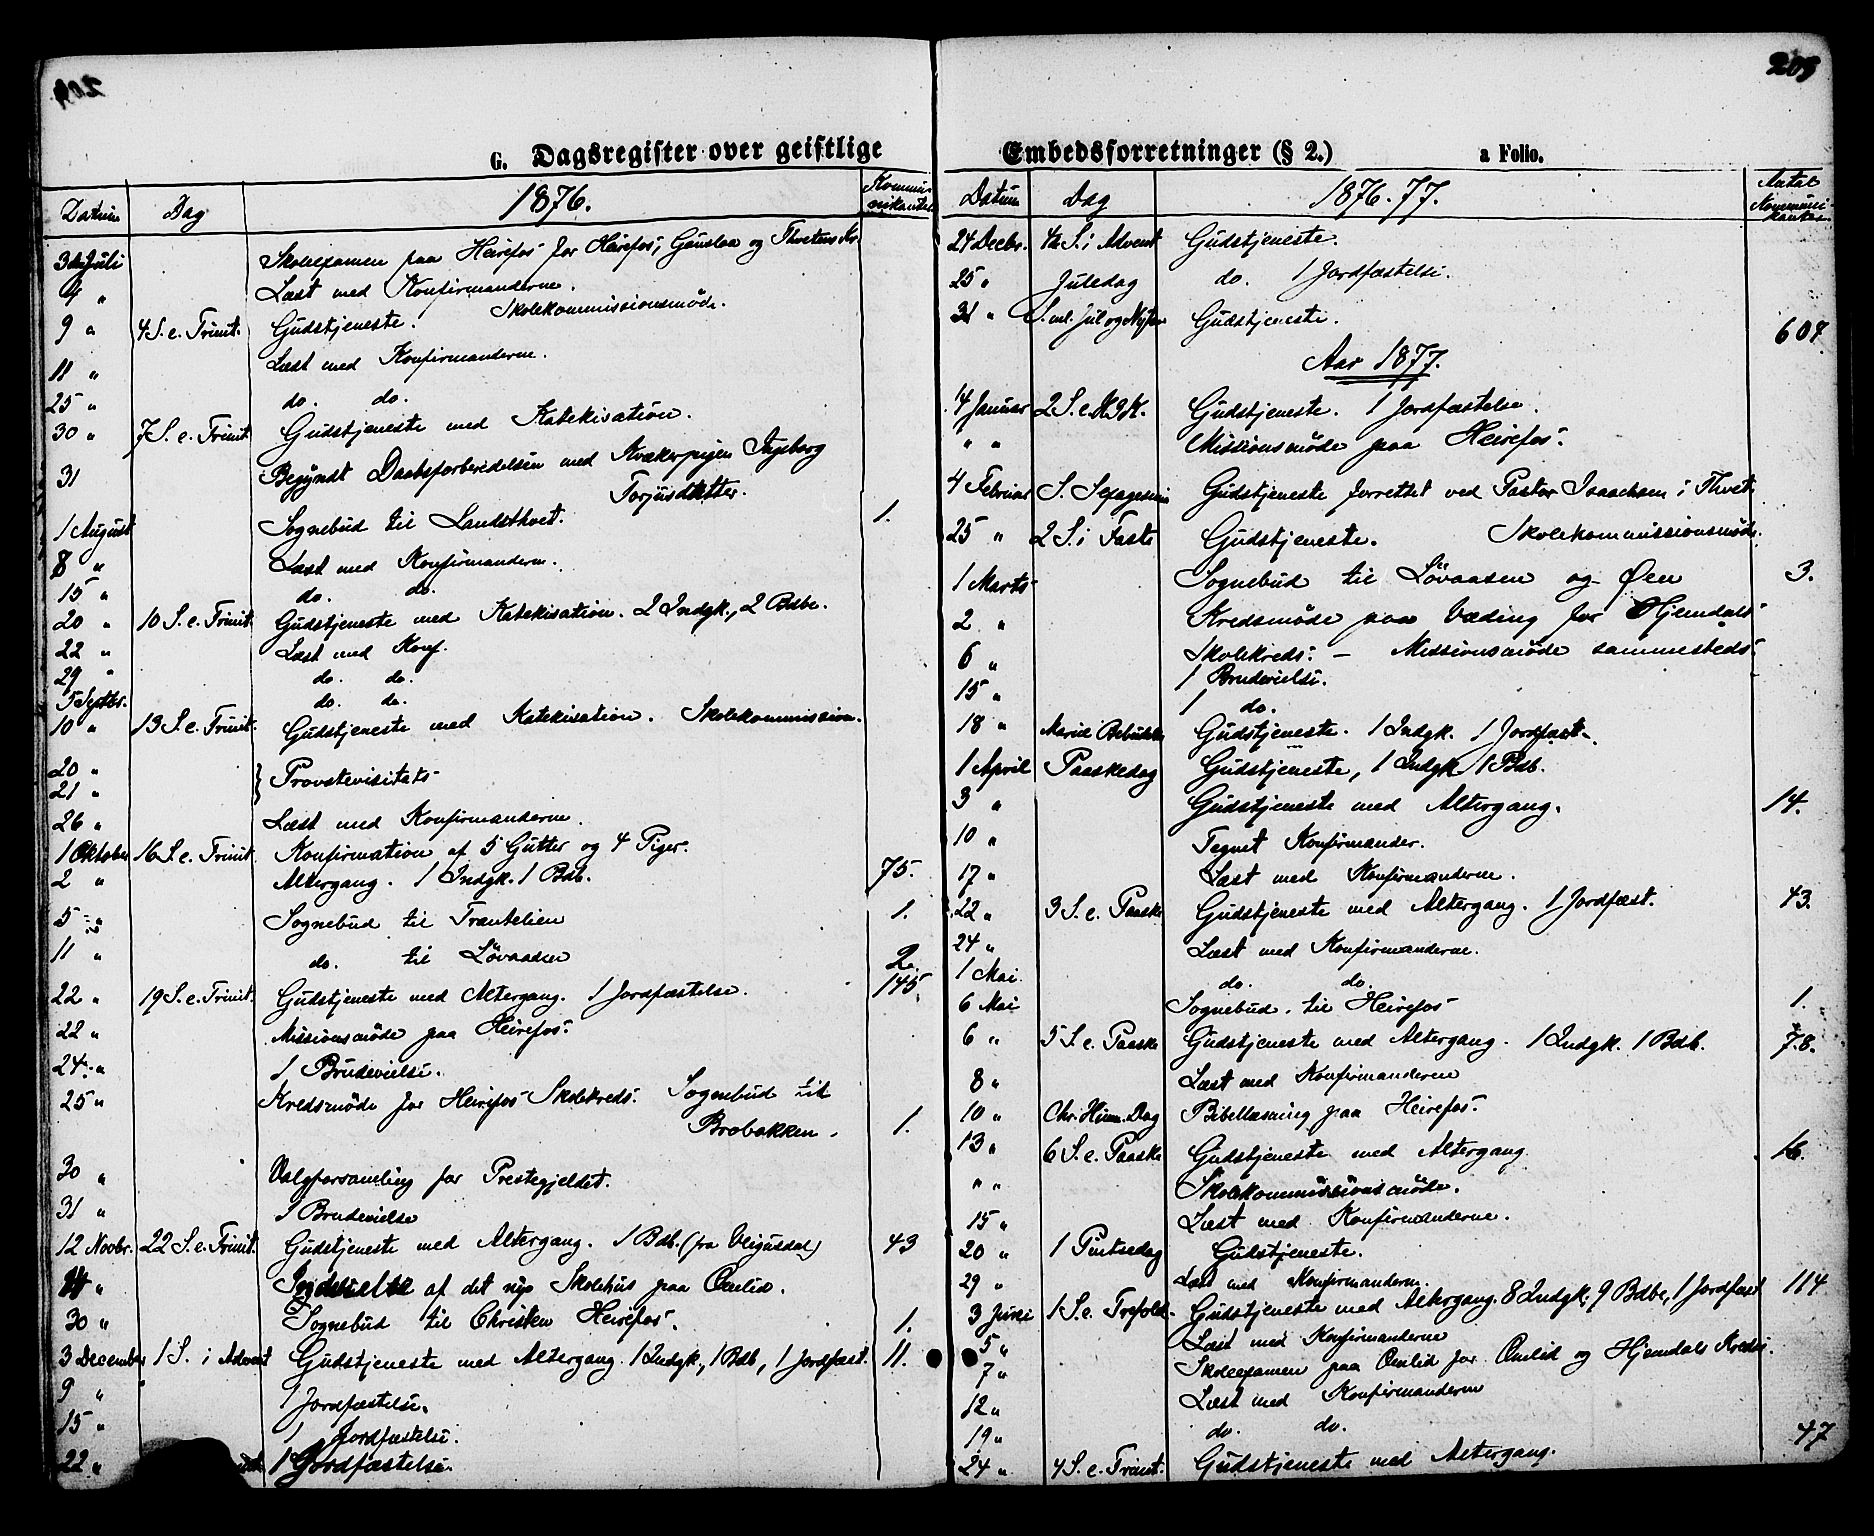 209
G. Dagsregister over geistlige
Datum Dag 1876. Kommunikanter
3die Juli Skoleexamen paa Heirefos for Heirefos, Gauslaa og Thvetens Kr.
4 " Læst med Konfirmanderne.
9 " 4 S. e. Trinit. Gudstjeneste. Skolekommissionsmöde.
11 " Læst med Konfirmanderne.
25 " do. do.
30 " 7 S. e. Trinit. Gudstjeneste med Katekisation.
31 Begyndt Daabsforberedelsen med Kvækerpigen Ingeborg
Torjusdatter.
1 August Sognebud til Landsthvet. 1.
8 " Læst med Konfirmanderne.
15 " do. do.
20 " 10 S. e. Trinit. Gudstjeneste med Katekisation. 2 Indgk., 2 Bdbe.
22 " Læst med Konf.
29 " do. do.
5 Septbr. do. do.
10 " 13 S. e. Trinit. Gudstjeneste med Katekisation. Skolekommission.
20 "
21 " } Provstevisitats
26 " Læst med Konfirmanderne.
1 Oktober 16 S. e. Trinit. Konfirmation af 5 Gutter og 4 Piger.
2 " Altergang. 1 Indgk. 1 Bdb. 75.
5 " Sognebud til Træntelien 1.
11 " do. til Lövaasen 2.
22 " 19 S. e. Trinit. Gudstjeneste med Altergang. 1 Jordfæstelse. 145
22 " Missionsmöde paa Heirefos.
24 " 1 Brudevielse.
25 " Kredsmöde for Heirefos Skolekreds. Sognebud til
Brobakken. 1.
30 " Valgforsamling for Prestegjeldet.
31 " 1 Brudevielse
12 Novbr. 22 S. e. Trinit. Gudstjeneste med Altergang. 1 Bdb. (fra Vegusdal) 43
14 " Indvielse af det nye Skolehus paa Omlid.
30 " Sognebud til Christen Heirefos. 1.
3 December 1 S. i Advent Gudstjeneste med Altergang. 1 Indgk., 1 Bdb, 1 Jordfæst. 11.
9 " 1 Jordfæstelse.
15 " 1 Jordfæstelse.
22 " 1 Jordfæstelse.
205
Embedsforretninger (§ 2.) a Folio.
Datum Dag 1876.77. Antal Kommunikanter
24 Decbr. 4de S. i Advent Gudstjeneste.
25 " Juledag do. 1 Jordfæstelse.
31 " S. ml. Jul og Nytaar Gudstjeneste. 607
Aar 1877.
14 Januar 2 S. e. H. 3 K. Gudstjeneste. 1 Jordfæstelse.
" " Missionsmöde paa Heirefos.
4 Februar S. Sexagesima Gudstjeneste forrettet ved Pastor Isaachsen i Thvet.
25 " 2 S. i Faste Gudstjeneste. Skolekommissionsmöde.
1 Marts Sognebud til Lövaasen og Øen 3.
2 " Kredsmöde paa Væding for Hjemdals
6 " Skolekreds. - Missionsmöde sammesteds.
15 " 1 Brudevielse.
1 do.
18 " Mariæ Bebudelse Gudstjeneste. 1 Indgk. 1 Jordfæst.
1 April Paaskedag Gudstjeneste, 1 Indgk 1 Bdb.
3 " Gudstjeneste med Altergang. 14.
10 " Tegnet Konfirmander.
17 " Læst med Konfirmanderne.
22 " 3 S. e. Paaske Gudstjeneste med Altergang. 1 Jordfæst. 43.
24 " Læst med Konfirmanderne.
1 Mai do. do.
6 Mai Sognebud til Heirefos 1.
6 " 5 S. e. Paaske Gudstjeneste med Altergang. 1 Indgk. 1 Bdb. 78.
8 " Læst med Konfirmanderne
10 " Chr. Himm. Dag Bibellæsning paa Heirefos.
13 " 6 S. e. Paaske Gudstjeneste med Altergang 16.
" " Skolekommissionsmöde.
15 " Læst med Konfirmanderne.
20 " 1 Pintsedag Gudstjeneste.
29 " Læst med Konfirmanderne.
3 Juni 1 S. e. Trefold. Gudstjeneste med Altergang. 8 Indgk. 9 Bdbe, 1 Jordfæst 114
5 " Læst med Konfirmanderne
7 " Skoleexamen paa Omlid for Omlid og Hjemdals Kredse.
12 " Læst med Konfirmanderne
19 " do. do.
24 " 4 S. e. Trinit. Gudstjeneste med Altergang. 47